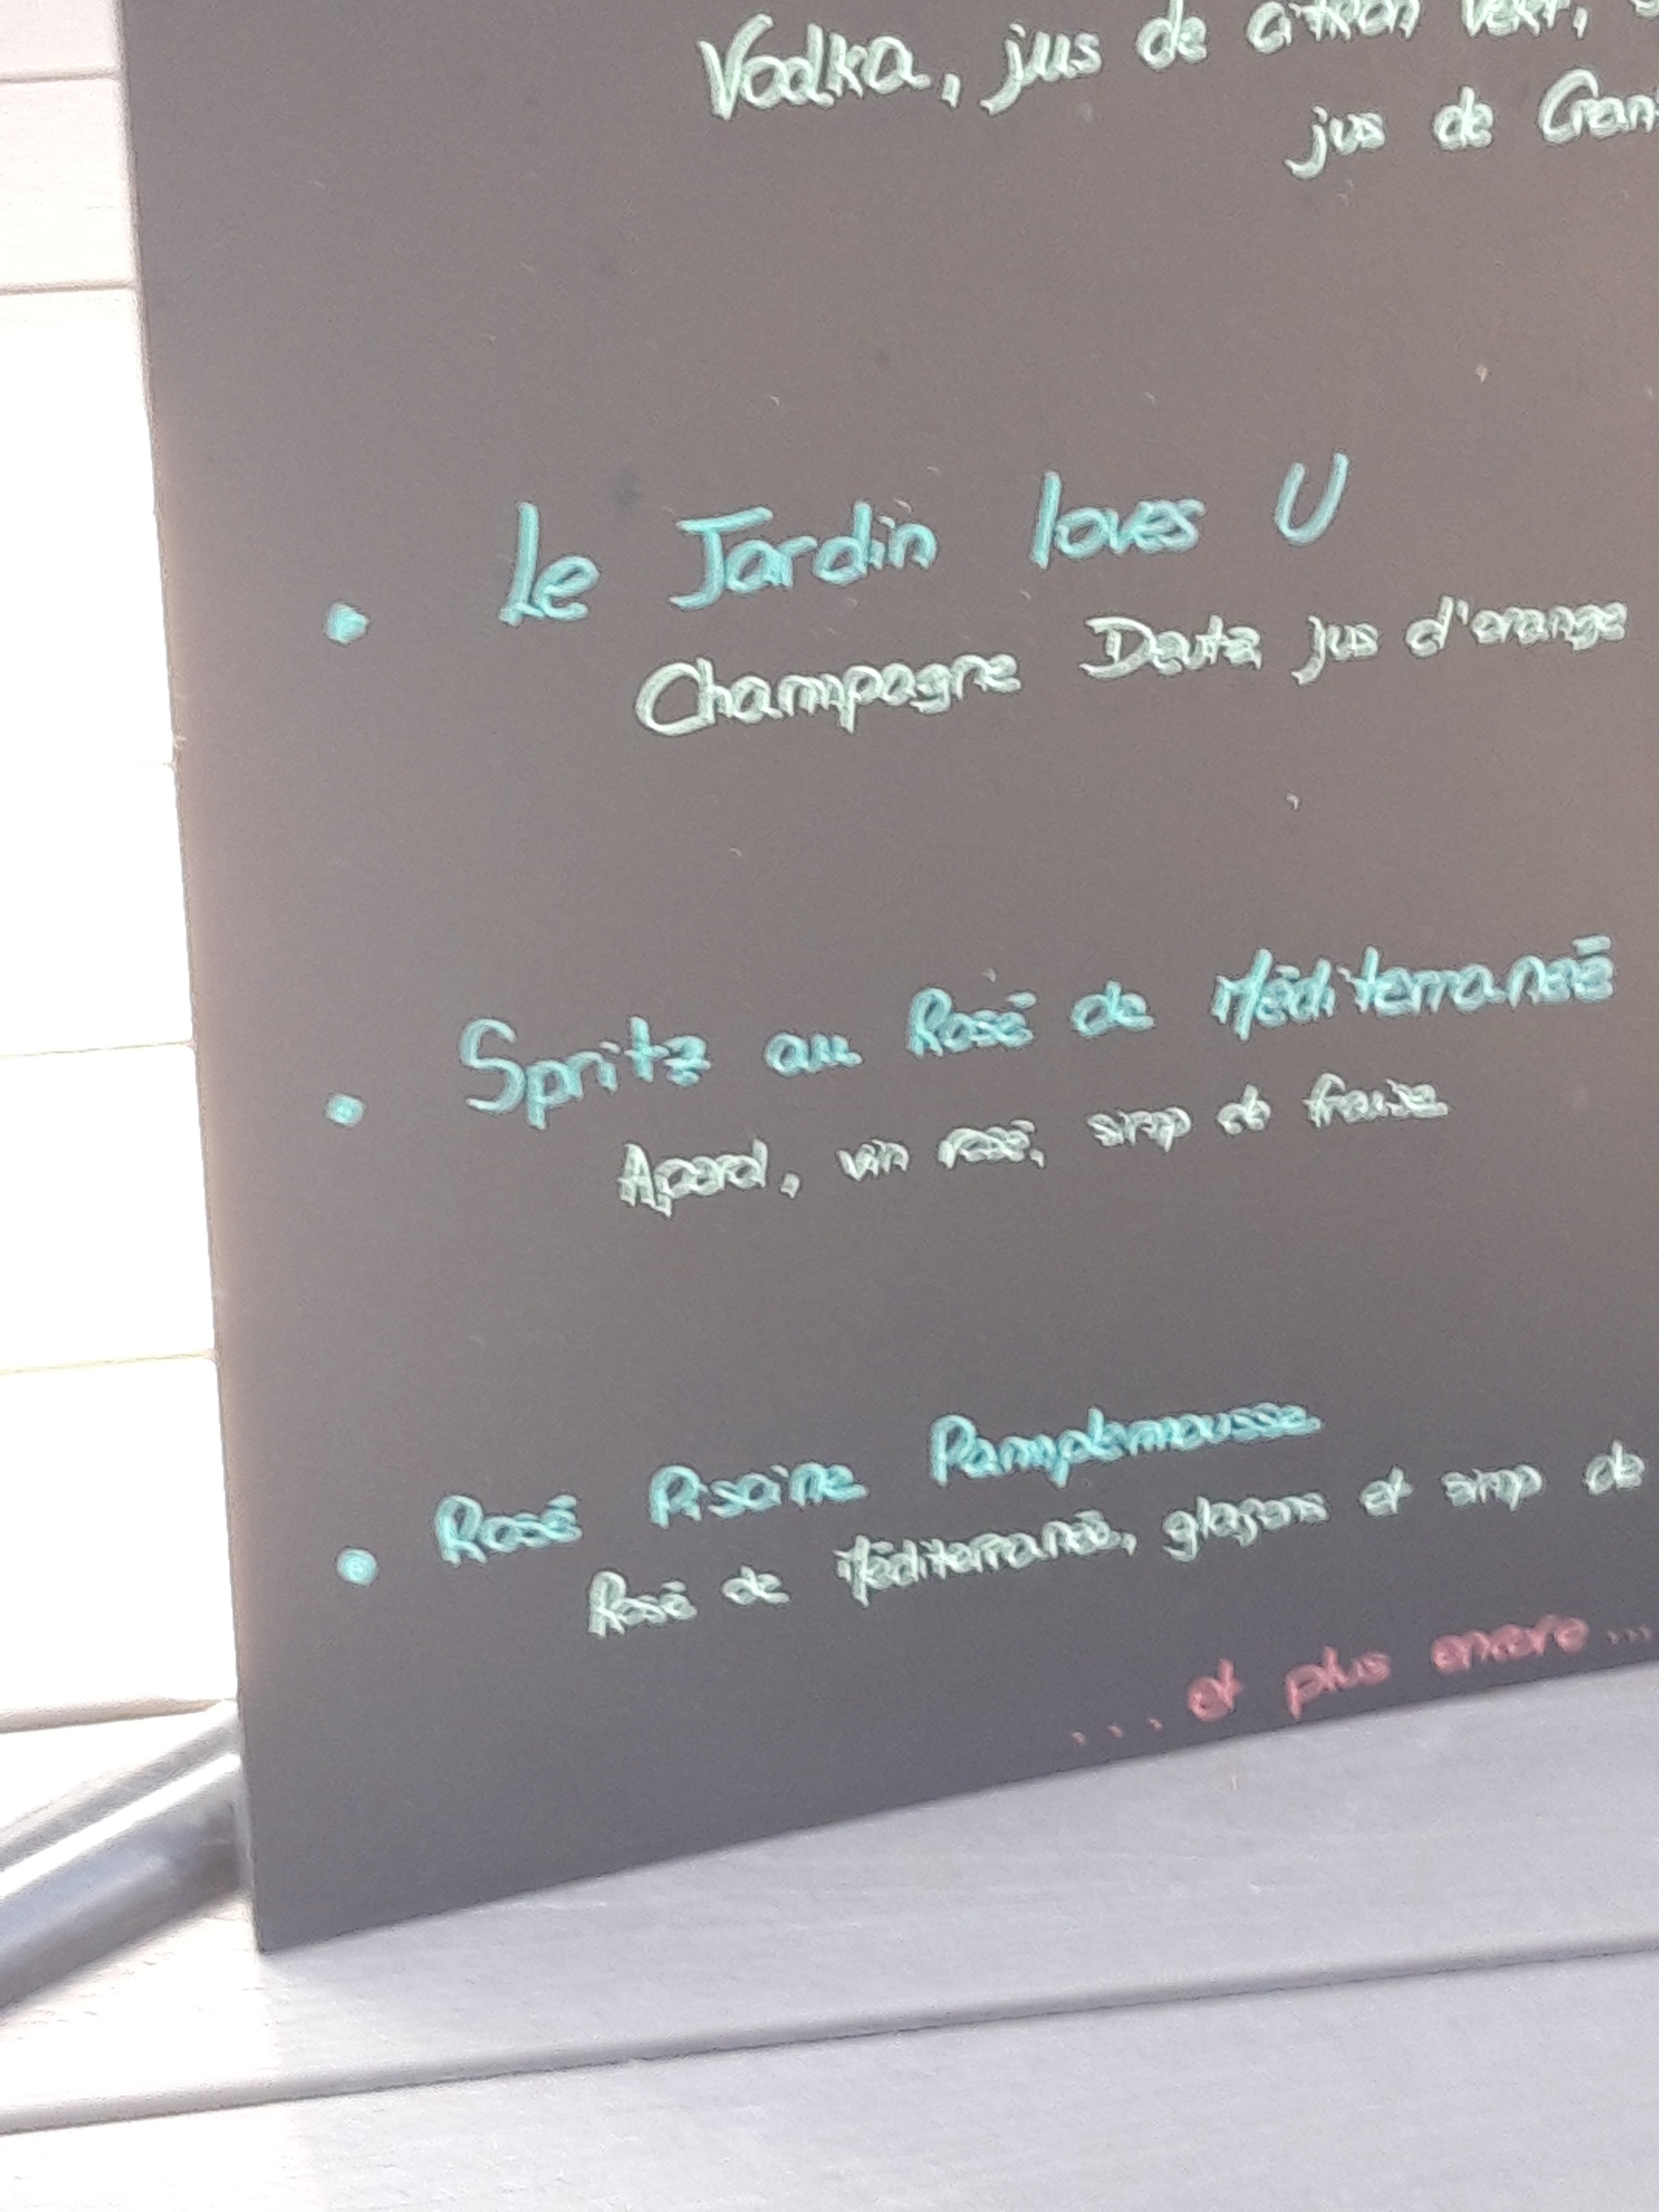 Vodka, jus de citron vert,
jus de
Le Jardin loves U
Champagne Deutz jus d'orange
Spritz au Rosé de Méditerranée
Aperol, vin rosé, sirop de fraise
Rosé Piscine Pamplemousse
Rosé de Méditerranée, glaçons et sirop de
... et plus encore ...